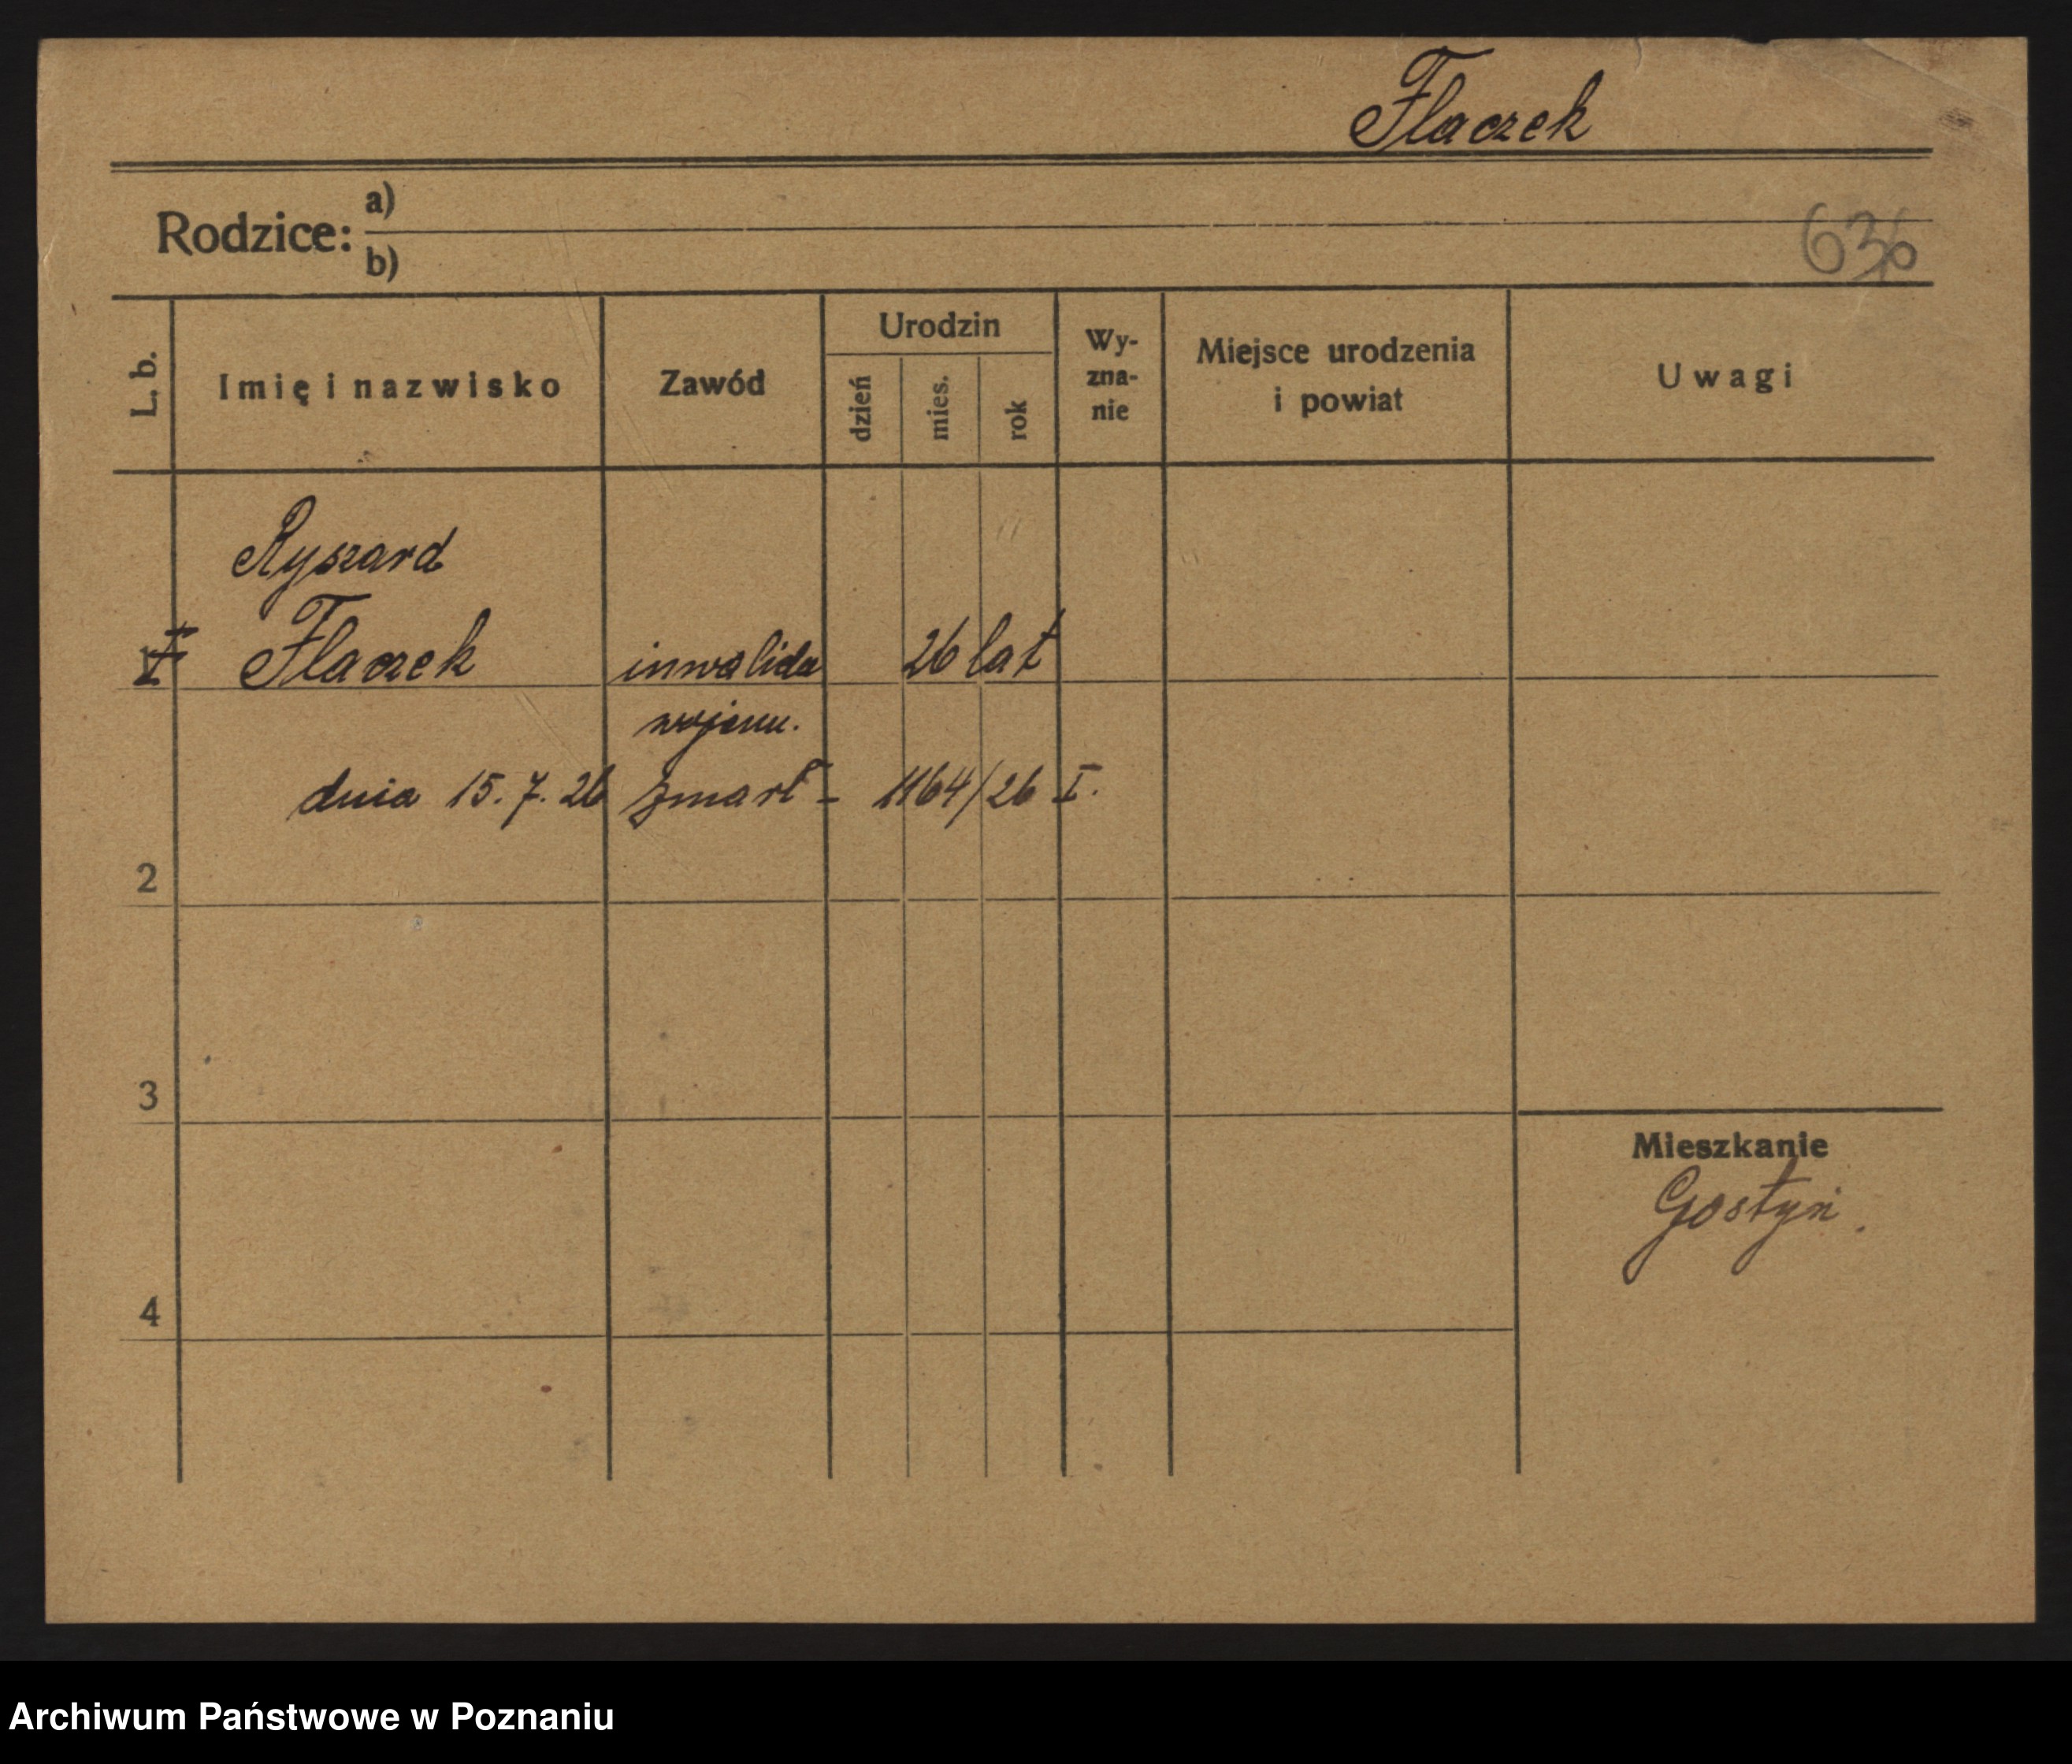 Flaczek
Rodzice: a)
b)
636
L. b. Imię i nazwisko Zawód Urodzin dzień mies. rok Wy-zna-nie Miejsce urodzenia i powiat Uwagi
Ryszard
1 Flaczek inwalida 26 lat
wojenn.
dnia 15.7.26 zmarł - 1164/26 I.
2
3
Mieszkanie
Gostyń.
4
Archiwum Państwowe w Poznaniu